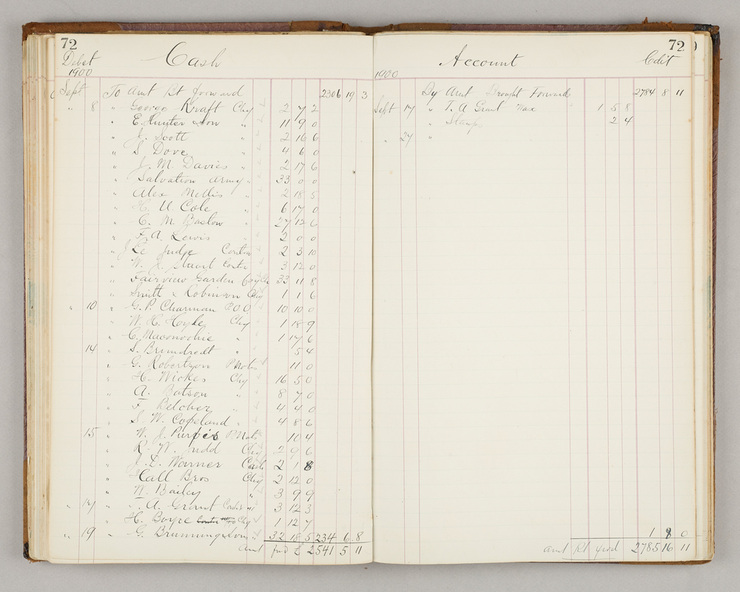 72
Debit Cash
1900
Sept To Amt Bt forward 2306 19 3
8 " George Kraft Chq 2 7 2
" E Hunter & Son " 11 9 0
" J. Scott " 2 16 6
" S Dove " 4 6 0
" J. M. Davies " 2 17 6
" Salvation Army " 33 0 0
" Alex Mellis " 2 18 5
" H. U Cole " 6 17 0
" C. M Barlow " 27 12 6
" F. A. Lewis " 2 0 0
" Le Judge Contra 2 3 10
" W. J. Stuart Contra 3 12 0
" Fairview Garden 33 11 8
" Smith & Robinson Chq 1 1 6
" 10 " G. P. Charman P.O.O 10 10 0
" W. H. Hoyle Chq 1 18 9
" C. Maconochie " 1 17 6
14 " S. Brundrett " 5 4
" G. Robertson P Note 11 0
" H. Wickes Chq 16 5 0
" A. Batson " 8 7 0
" F. Belcher " 4 4 0
" S. W. Copeland " 4 8 6
15 " W. J. Purvis P Note 10 4
" R. W. Judd Chq 2 9 6
" J. D. Warner Cash 2 1 8
" Hall Bros Chq 2 12 0
" W. Bailey " 3 9 9
" 17 " " A. Grant Contra 3 12 3
" H. Boyce Chq 1 12 7
" 19 " G. Brunning 32 18 5 234 6 8
Amt fwd £ 2541 5 11
72
Account Credit
1900
By Amt Brought Forward 2784 8 11
Sept 17 " T. A Grant 1 5 8
" 24 " Stamps 2 4
1 8 0
Amt Bt fwd 2785 16 11